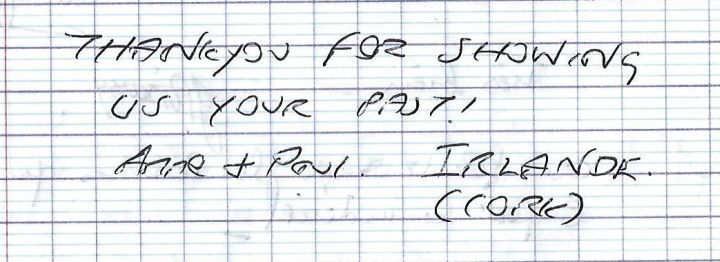 THANKYOU FOR SHOWING
US YOUR PAST!
Anne + Paul. IRLANDE.
(CORK)